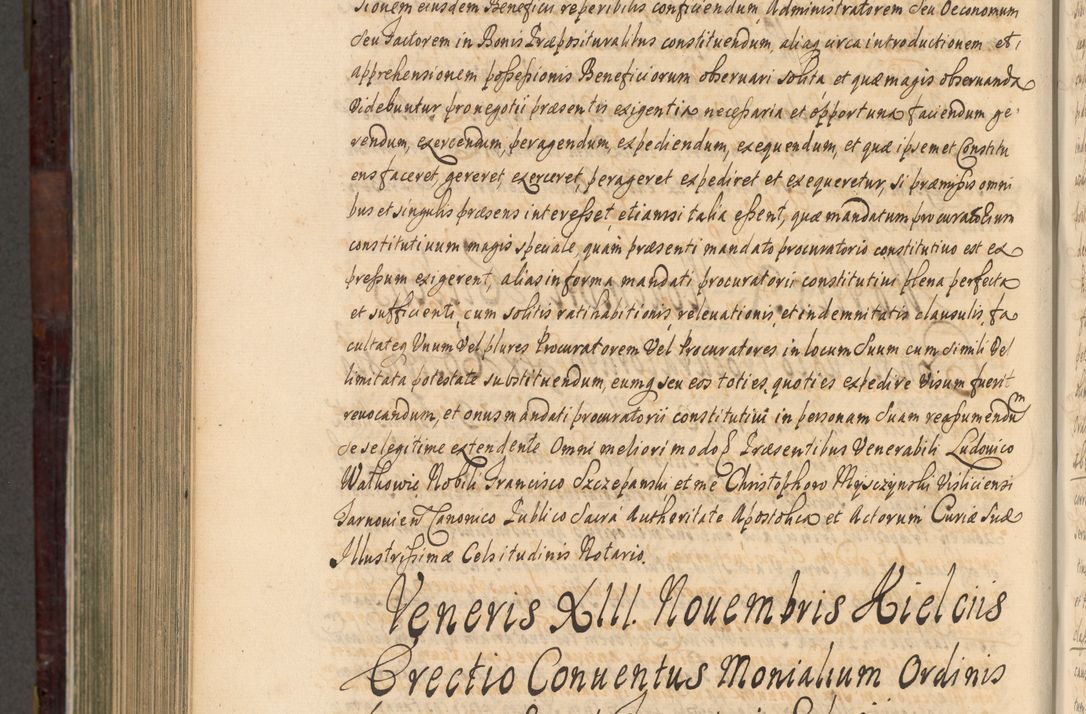 sionem eiusdem Beneficii reperibilis conficiendum, Administratorem seu Oeconomum
seu Factorem in Bonis Præposituralibus constituendum, aliaq circa introductionem et
apprehensionem possessionis Beneficiorum observari solita et quæ magis observanda
Videbuntur pro negotii præsentis exigentia necessaria et opportuna faciendum ge
rendum, exercendum, peragendum, expediendum, exequendum, et quæ ipsemet Constitu
ens faceret, gereret, exerceret, perageret expediret et exequeretur, si præmissis omni
bus et singulis præsens interesset, etiamsi talia essent, quæ mandatum procuratorium
constitutiuum magis speciale, quam præsenti mandato procuratorio constitutiuo est ex
pressum exigerent, alias in forma mandati procuratorii constitutiui plena perfecta
et sufficienti, cum solitis ratihabitionis, releuationis, et indemnitatis clausulis, fa
cultateq Unum Vel plures Procuratorem Vel Procuratores in locum Suum cum simili Vel
limitata potestate substituendum, eumq seu eos toties, quoties expedire Visum fuerit
reuocandum, et onus mandati procuratorii constitutiui in personam Suam reassumendum
se se legitime extendente Omni meliori modo Præsentibus Venerabili Ludouico
Watkowic, Nobili Francisco Szczepanski et me Christophoro Mysczynski Visliciensi
Tarnouien Canonico Publico Sacra Authoritate Apostolica et Actorum Curiæ Suæ
Illustrissimæ Celsitudinis Notario.
Veneris XIII. Nouembris Kielciis
Erectio Conuentus Monialium Ordinis